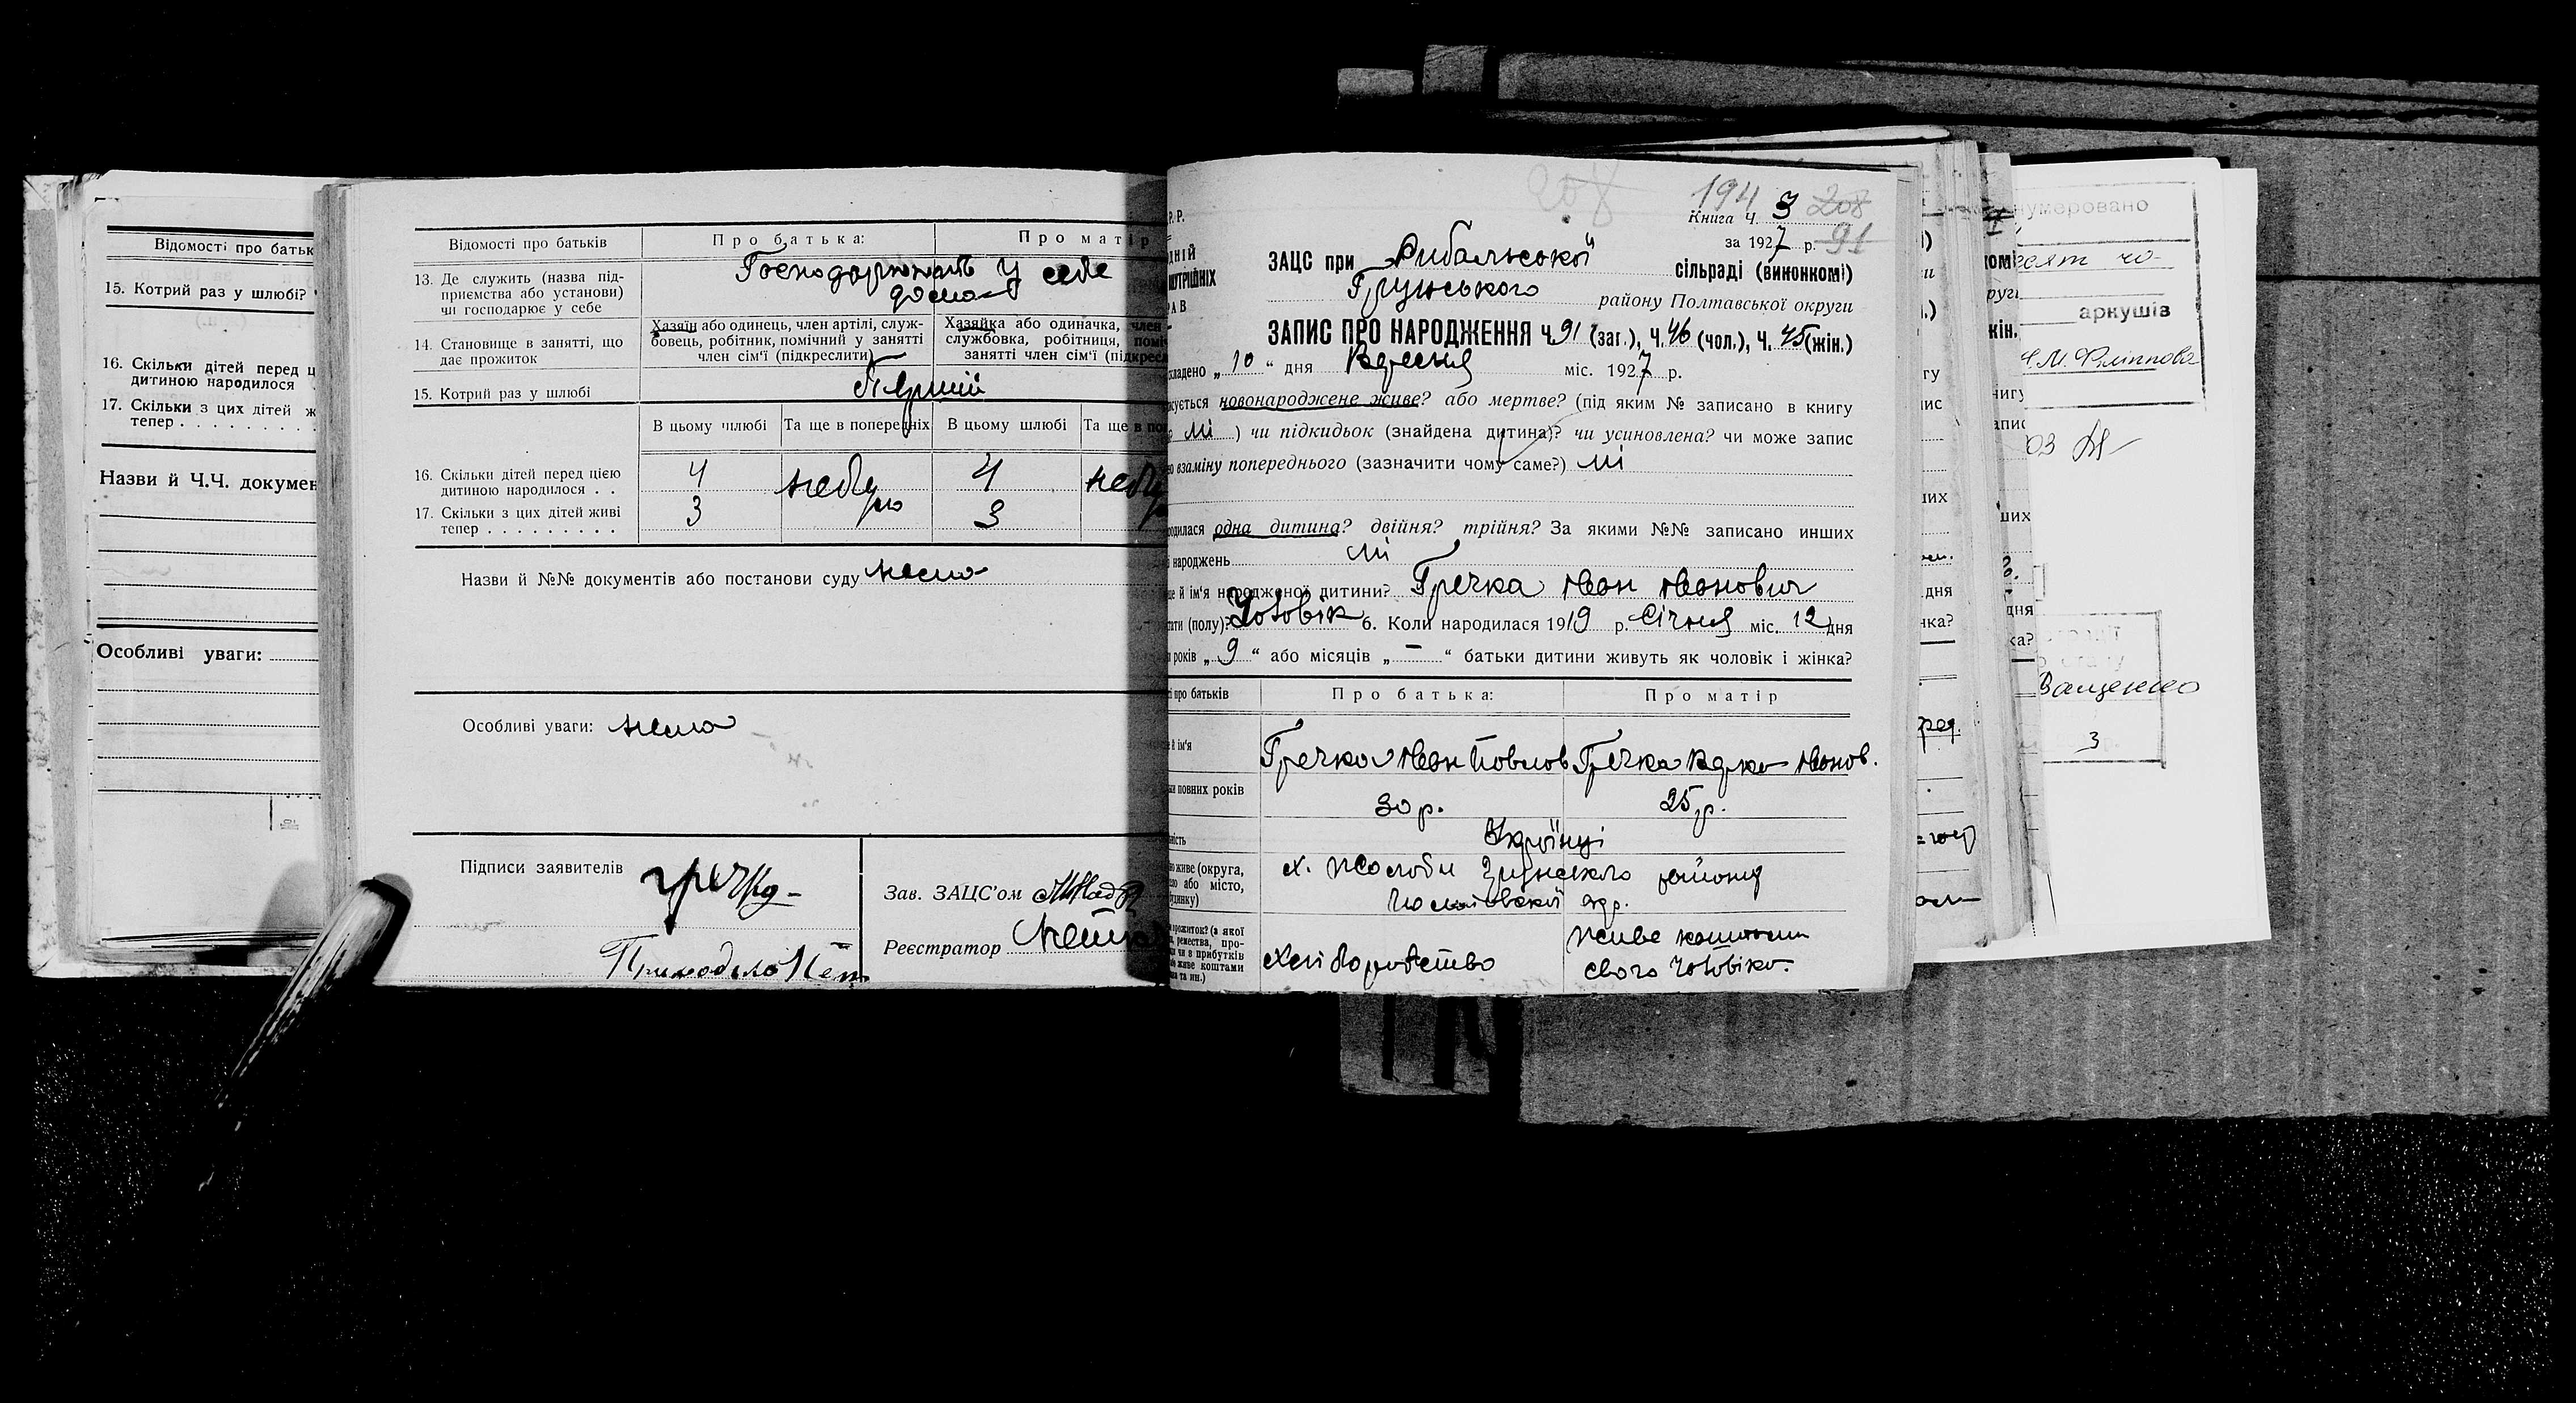 Відомості про батьк
15. Котрий раз у шлюбі?
16. Скільки дітей перед ц
дитиною народилося
17. Скільки з цих дітей ж
тепер . . . . . . . . .
Назви й Ч.Ч. докумен
Особливі уваги:
Відомості про батьків
Про батька:
Про матір
13. Де служить (назва під-
приємства або установи)
чи господарює у себе
Господарюють у себе
дома
14. Становище в занятті, що
дає прожиток
Хазяїн або одинець, член артілі, служ-
бовець, робітник, помічний у занятті
член сім'ї (підкреслити)
Хазяйка або одиначка, член
службовка, робітниця, поміч
занятті член сім'ї (підкресл
15. Котрий раз у шлюбі
Перший
В цьому шлюбі Та ще в попередніх В цьому шлюбі Та ще в по
16. Скільки дітей перед цією
дитиною народилося . .
4 небуло 4 небу
17. Скільки з цих дітей живі
тепер . . . . . . . . .
3 3
Назви й №№ документів або постанови суду нема
Особливі уваги: нема
Підписи заявителів гречка
Зав. ЗАЦС'ом
Реєстратор
Р. Р.
ДНІЙ
НУТРІШНІХ
РАВ
208
194
Книга Ч. 3 208
за 1927 р. 91
ЗАЦС при Рибальської сільраді (виконкомі)
Грунського району Полтавської округи
ЗАПИС ПРО НАРОДЖЕННЯ Ч. 91 (заг.), Ч. 46 (чол.), Ч. 45 (жін.)
кладено „ 10 “ дня Вересня міс. 1927 р.
кується новонароджене живе? або мертве? (під яким № записано в книгу
ні ) чи підкидьок (знайдена дитина)? чи усиновлена? чи може запис
взаміну попереднього (зазначити чому саме?) ні
одилася одна дитина? двійня? трійня? За якими №№ записано инших
народжень ні
ще й ім'я народженої дитини? Гречка Іван Іванович
тати (полу)? Чоловік 6. Коли народилася 1919 р. Січня міс. 12 дня
років „ 9 “ або місяців „ — “ батьки дитини живуть як чоловік і жінка?
і про батьків
Про батька:
Про матір
й ім'я
Гречка Іван Павлов Гречка Ївонов.
ки повних років
30 р. 25 р.
ність
Українці
но живе (округа,
ело або місто,
удинку)
х. Жолоби Грунського району
Полтавської окр.
прожиток? (з якої
ремества, про-
чи в прибутків
живе коштами
та ин.)
Хліборобство
живе коштами
свого чоловіка.
нумеровано
сят чо-
аркушів
Ващенко
3